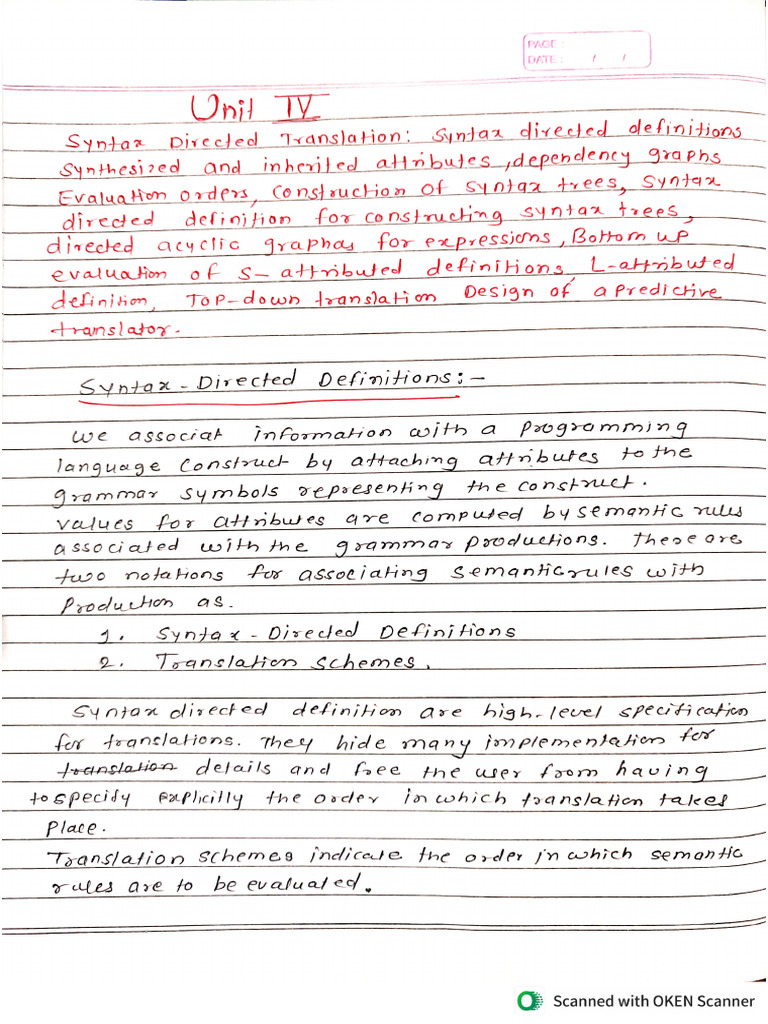 PAGE :
DATE : / /
Unit IV
Syntax Directed Translation: Syntax directed definitions
Synthesized and inherited attributes, dependency graphs
Evaluation orders, Construction of Syntax trees, Syntax
directed definition for constructing syntax trees,
directed acyclic graphas for expressions, Bottom up
evaluation of S- attributed definitions, L-attributed
definition, Top-down translation Design of a predictive
translator.
Syntax - Directed Definitions:-
We associat information with a programming
language construct by attaching attributes to the
grammar symbols representing the construct.
values for attributes are computed by semantic rules
associated with the grammar productions. These are
two notations for associating semantic rules with
Production as.
1. Syntax - Directed Definitions
2. Translation schemes.
Syntax directed definition are high-level specification
for translations. They hide many implementation for
translation details and free the user from having
to specify explicitly the order in which translation takes
place.
Translation schemes indicate the order in which semantic
rules are to be evaluated.
Scanned with OKEN Scanner